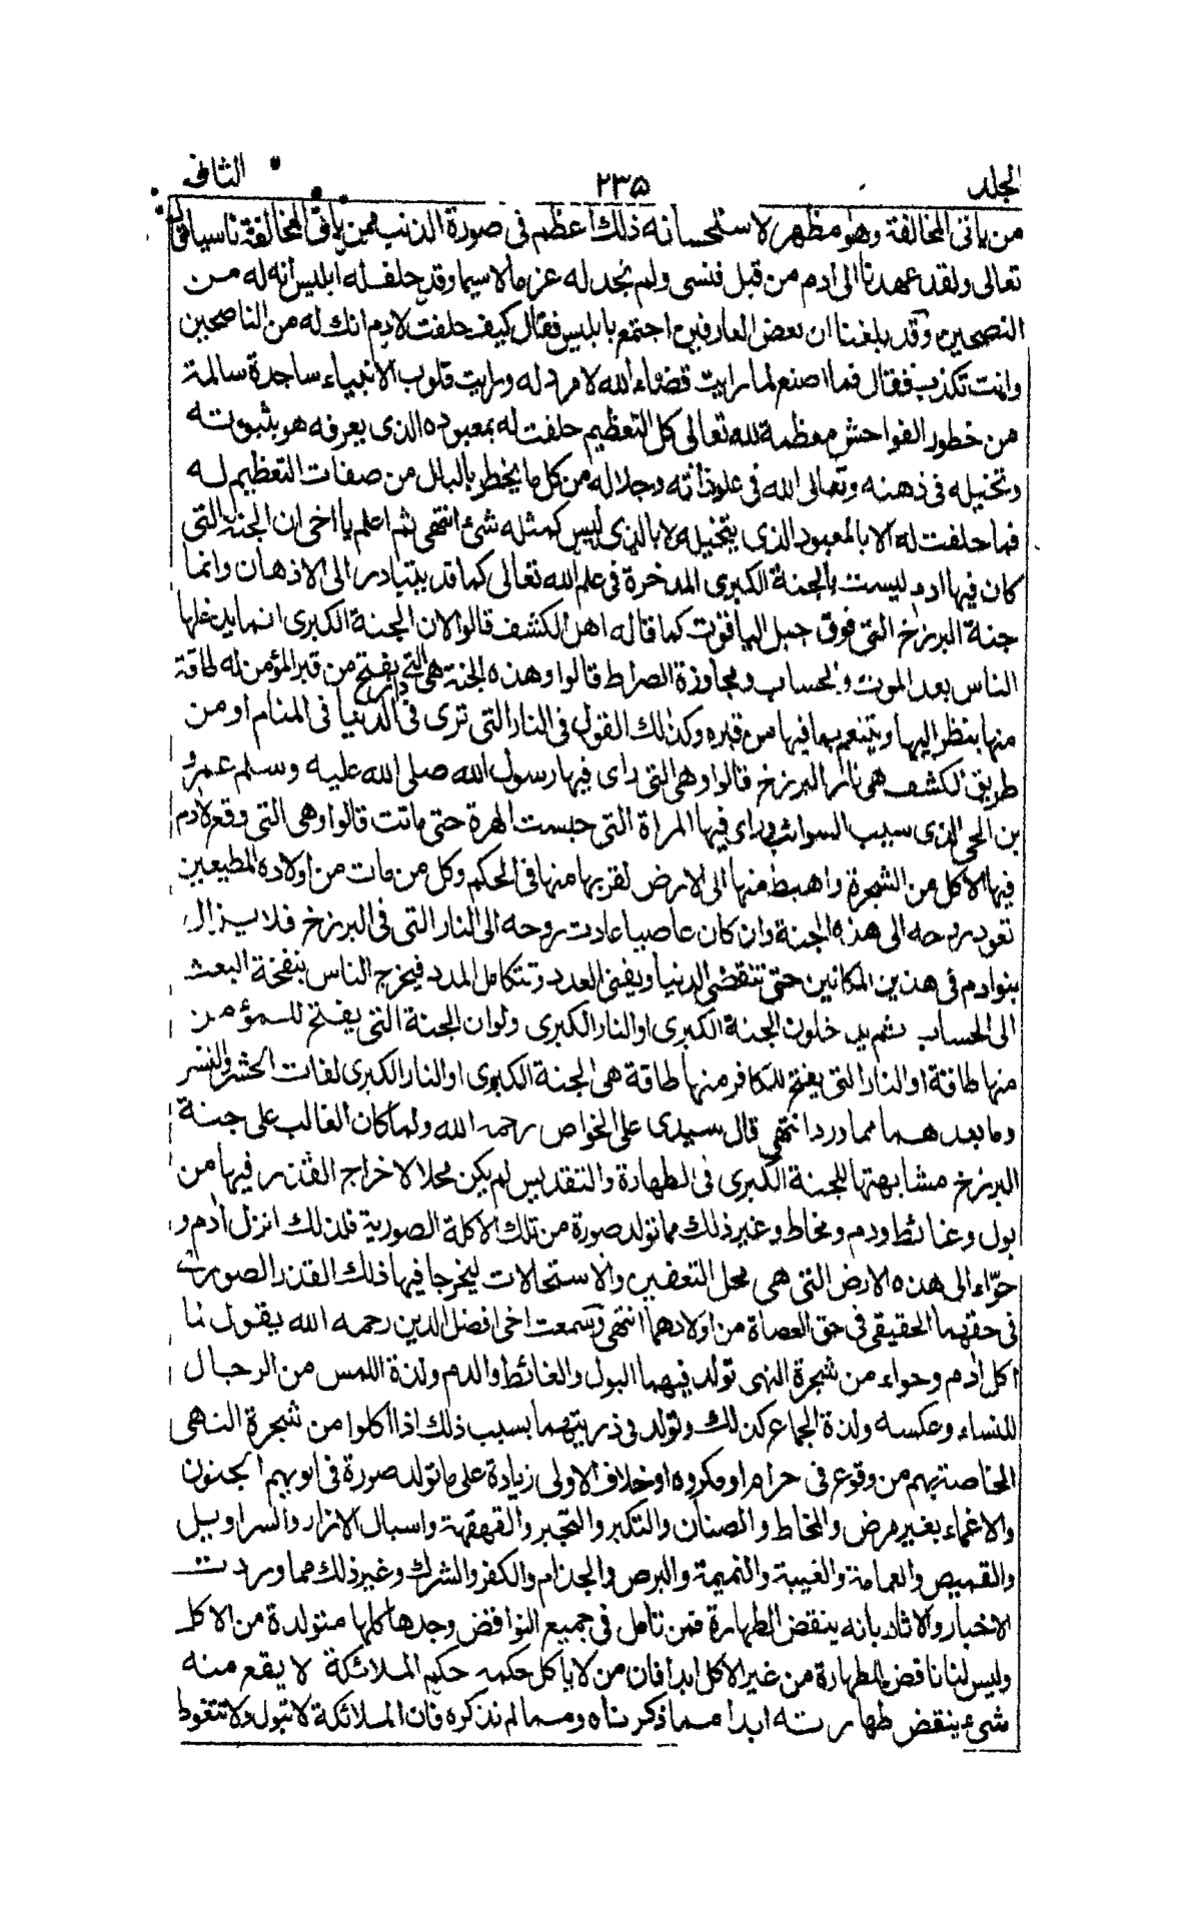 الجلد ٢٣٥ الثانى
من ياتى المخالفة وهو مظهر لاستحسانه ذلك اعظم فى صورة الذنب ممن ياتى المخالفة ناسيا قال
تعالى ولقد عهدنا الى ادم من قبل فنسى ولم نجد له عزما لاسيما وقد حلف له ابليس انه له مـن
النصحين وقد بلغنا ان بعض العارفين اجتمع بابليس فقال كيف حلفت لادم انك له من الناصحين
وانت تكذب فقال فما اصنع لما رايت قضاء الله لا مرد له ورايت قلوب الانبياء ساجدة سالمة
من خطور الفواحش معظمة لله تعالى كل التعظيم حلفت له بمعبوده الذى يعرفه هو بثبوته
وتخيله فى ذهنه وتعالى الله فى علو ذاته وجلاله من كل ما يخطر بالبال من صفات التعظيم لـه
فما حلفت له الا بالمعبود الذى يتخيله لا بالذى ليس كمثله شئ انتهى ثم اعلم يا اخى ان الجنة التى
كان فيها ادم ليست بالجنة الكبرى المدخرة فى علم الله تعالى كما قد يتبادر الى الاذهان وانما
جنة البرزخ التى فوق جبل الياقوت كما قاله اهل الكشف قالوا لان الجنة الكبرى انما يدخلها
الناس بعد الموت والحساب ومجاوزة الصراط قالوا وهذه الجنة هى التى يفتح من قبر المؤمن له طاقة
منها ينظر اليها ويتنعم بما فيها من قبره وكذلك القول فى النار التى ترى فى دار الدنيا فى المنام او من
طريق الكشف هى نار البرزخ قالوا وهى التى راى فيها رسول الله صلى الله عليه وسلم عمرو
بن لحى الذى سيب السوائب وراى فيها المراة التى حبست الهرة حتى ماتت قالوا وهى التى وقع لادم
فيها الاكل من الشجرة واهبط منها الى الارض لقربها منها فى الحكم وكل من مات من اولاده المطيعين
تعود روحه الى هذه الجنة وان كان عاصيا عادت روحه الى النار التى فى البرزخ فلا يـزال
بنوادم فى هذين المكانين حتى تنقضى الدنيا ويفنى العدد وتتكامل المدد فيخرج الناس بنفخة البعث
الى الحساب ثم يدخلون الجنة الكبرى او النار الكبرى ولوان الجنة التى يفتح للمؤمن
منها طاقة او النار التى يفتح للكافر منها طاقة هى الجنة الكبرى او النار الكبرى لفات الحشر والنشر
وما بعد هـما مما ورد انتهى قال سيدى على الخواص رحمه الله ولما كان الغالب على جنة
البرزخ مشابهتها للجنة الكبرى فى الطهارة والتقديس لم يكن محلا لاخراج القذر فيها من
بول وغائط ودم ومخاط وغير ذلك مما تولد صورة من تلك الاكلة الصورية فلذلك انزل ادم و
حوّاء الى هذه الارض التى هى محل التعفين والاستحالات ليخرجا فيها ذلك القذر الصورى
فى حقهما الحقيقى فى حق العصاة من اولادهما انتهى وسمعت اخى افضل الدين رحمه الله يقول لما
اكل ادم وحواء من شجرة النهى تولد فيهما البول والغائط والدم ولذة اللمس من الرجال
للنساء وعكسه ولذة الجماع كذلك وتولد فى ذريتهما بسبب ذلك اذا اكلوا من شجرة النهى
الخاصة بهم من وقوع فى حرام او مكروه او خلاف الاولى زيادة على ما تولد صورة فى ابويهم الجنون
والاغماء بغير مرض والمخاط والصنان والتكبر والتجبر والقهقهة واسبال الازار والسراويل
والقميص والعمامة والغيبة والنميمة والبرص والجذام والكفر والشرك وغير ذلك مما وردت
الاخبار والاثار بانه ينقض الطهارة فمن تامل فى جميع النواقض وجدها كلها متولدة من الاكل
وليس لنا ناقض للطهارة من غير الاكل ابدا فان من لا ياكل حكمه حكم الملائكة لا يقع منه
شئ ينقض طهارته ابدا مـما ذكرناه ومما لم نذكره فان الملائكة لا تبول ولا تتغوط